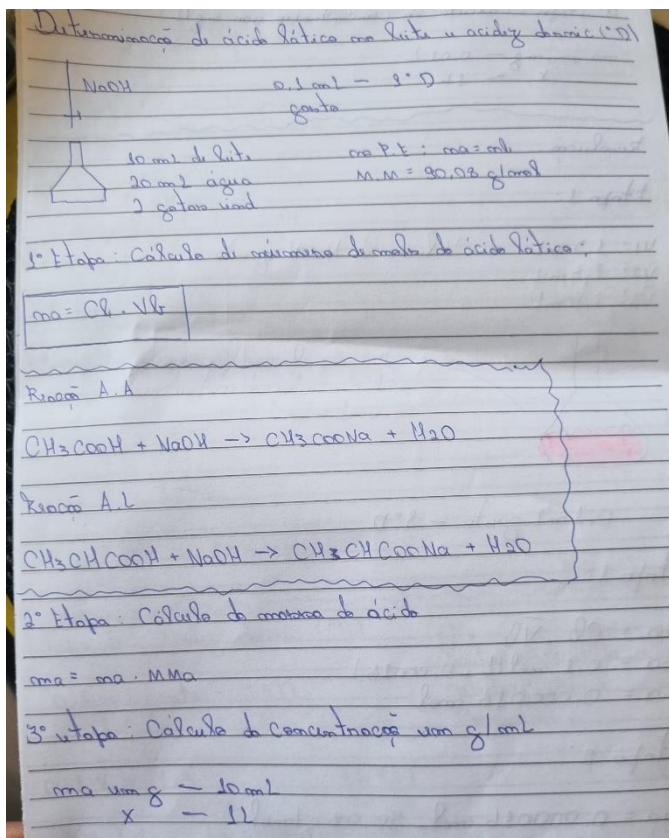 Determinação de ácido lático no leite e acidez dornic (°D)
NaOH
0,1 mL — 1°D
gasto
10 mL de leite
20 mL água
2 gotas ind
no P.E: na = nb
M.M = 90,08 g/mol
1° Etapa: Cálculo do número de mols do ácido lático:
na = Cb . Vb
Reação A.A
CH3COOH + NaOH -> CH3COONa + H2O
Reação A.L
CH3CHCOOH + NaOH -> CH3CHCOONa + H2O
2° Etapa: Cálculo da massa do ácido
ma = na . MMa
3° etapa: Cálculo da concentração em g/mL
ma em g — 10 mL
x — 1L